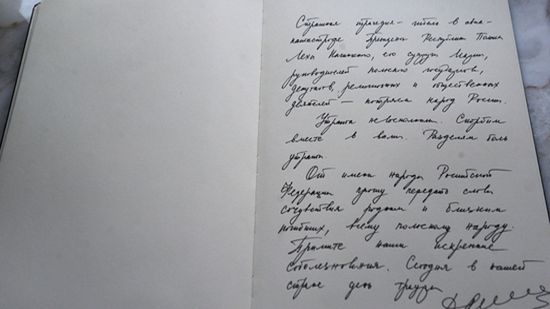 Страшная трагедия - гибель в авиа-
катастрофе Президента Республики Польша
Леха Качиньского, его супруги Марии,
руководителей польского государства,
депутатов, религиозных и общественных
деятелей — потрясла народ России.
Утрата невосполнима. Скорбим
вместе с вами. Разделяем боль
утраты.
От имени народа Российской
Федерации прошу передать слова
сочувствия родным и близким
погибших, всему польскому народу.
Примите наши искренние
соболезнования. Сегодня в нашей
стране день траура